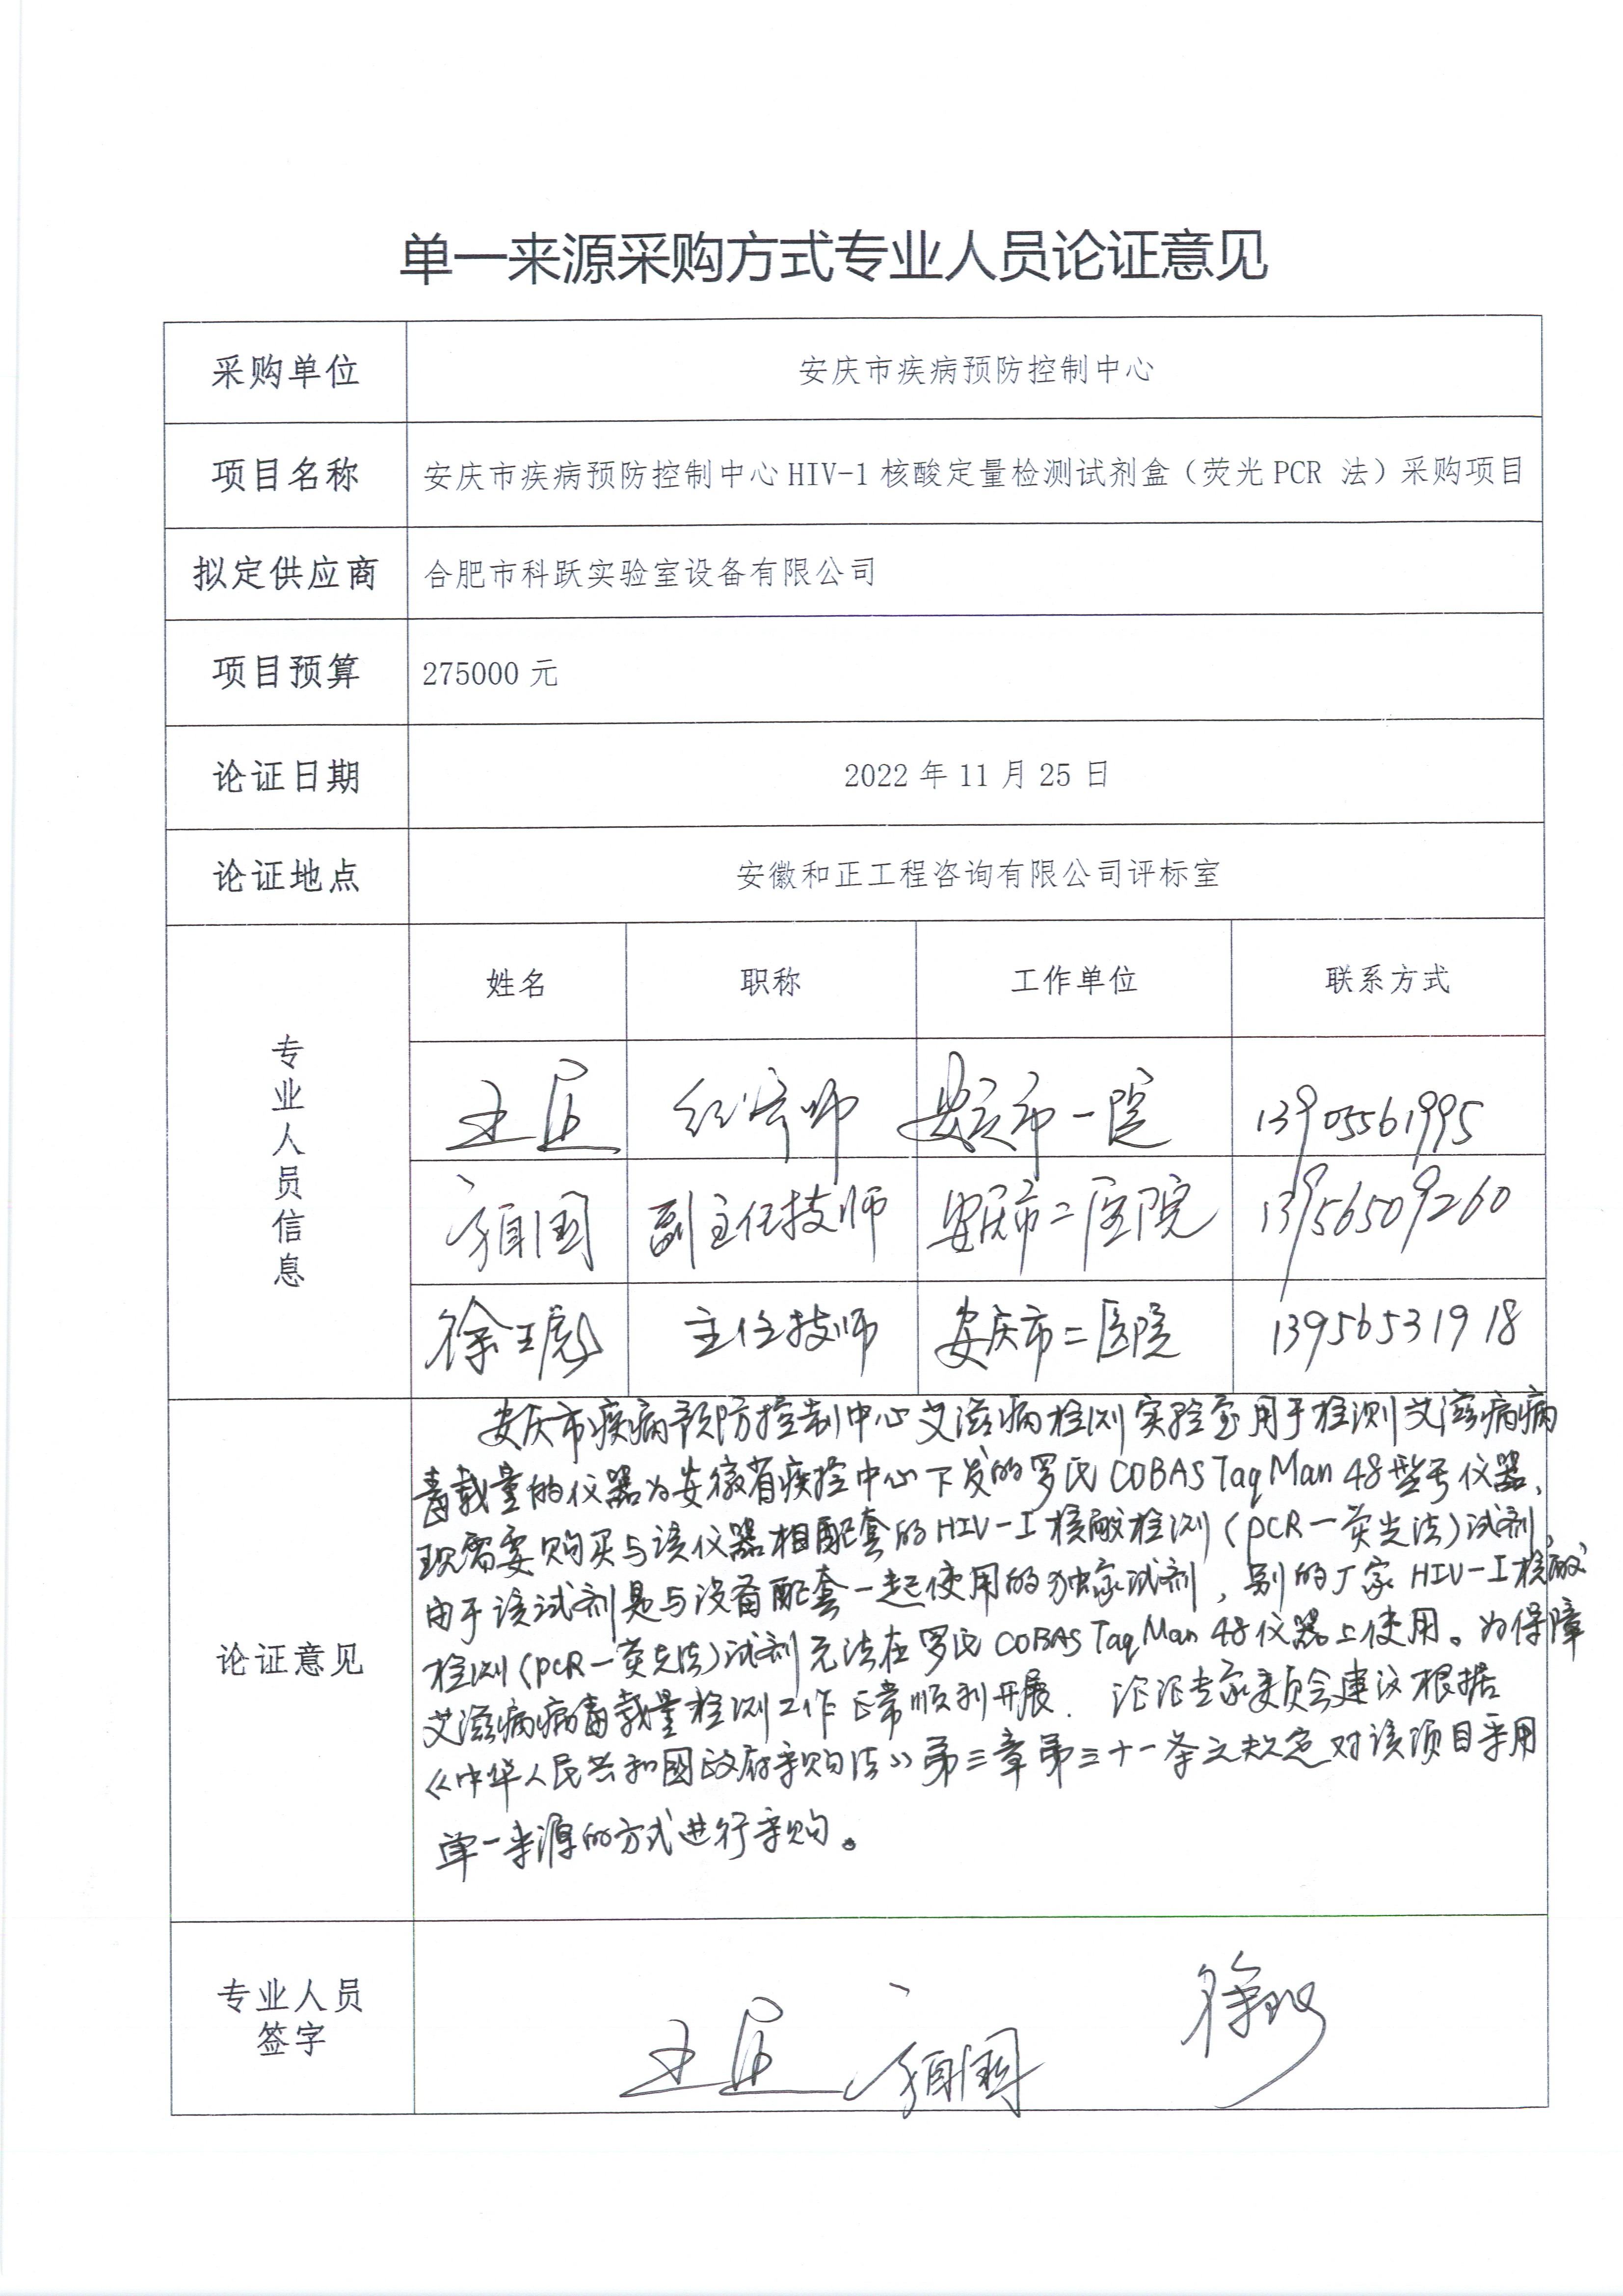 单一来源采购方式专业人员论证意见
采购单位 安庆市疾病预防控制中心
项目名称 安庆市疾病预防控制中心HIV-1核酸定量检测试剂盒（荧光PCR 法）采购项目
拟定供应商 合肥市科跃实验室设备有限公司
项目预算 275000 元
论证日期 2022 年 11 月 25 日
论证地点 安徽和正工程咨询有限公司评标室
专业人员信息
姓名 职称 工作单位 联系方式
王 经济师 安庆市一院 13905561995
国 副主任技师 安庆市二医院 13956509260
徐 主任技师 安庆市二医院 13956531918
论证意见
安庆市疾病预防控制中心艾滋病检测实验室用于检测艾滋病病
毒载量的仪器为安徽省疾控中心下发的罗氏COBAS TaqMan 48型号仪器，
现需要购买与该仪器相配套的HIV-I核酸检测（PCR-荧光法）试剂，
由于该试剂是与设备配套一起使用的独家试剂，别的厂家HIV-I核酸
检测（PCR-荧光法）试剂无法在罗氏COBAS TaqMan 48仪器上使用。为保障
艾滋病病毒载量检测工作正常顺利开展．论证专家委员会建议根据
《中华人民共和國政府采购法》第三章第三十一条之规定对该项目采用
单一来源的方式进行采购。
专业人员
签字
王 国 徐